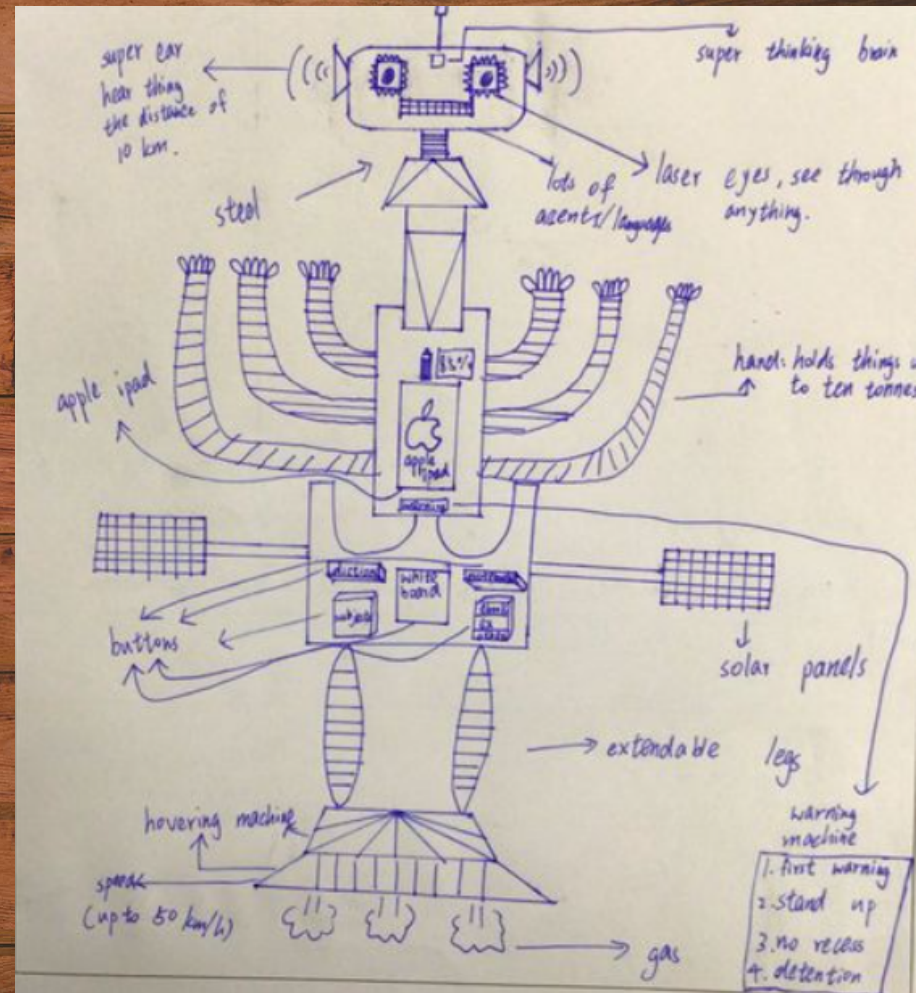 super ear
hear thing
the distance of
10 km.
super thinking brain
steel
lots of
acents/languages
laser eyes, see through
anything.
apple ipad
83%
apple
ipad
warning
hands: holds things u
to ten tonnes
white
board
buttons
solar panels
extendable legs
hovering machine
speak
(up to 50 km/h)
gas
warning
machine
1. first warning
2. stand up
3. no recess
4. detention